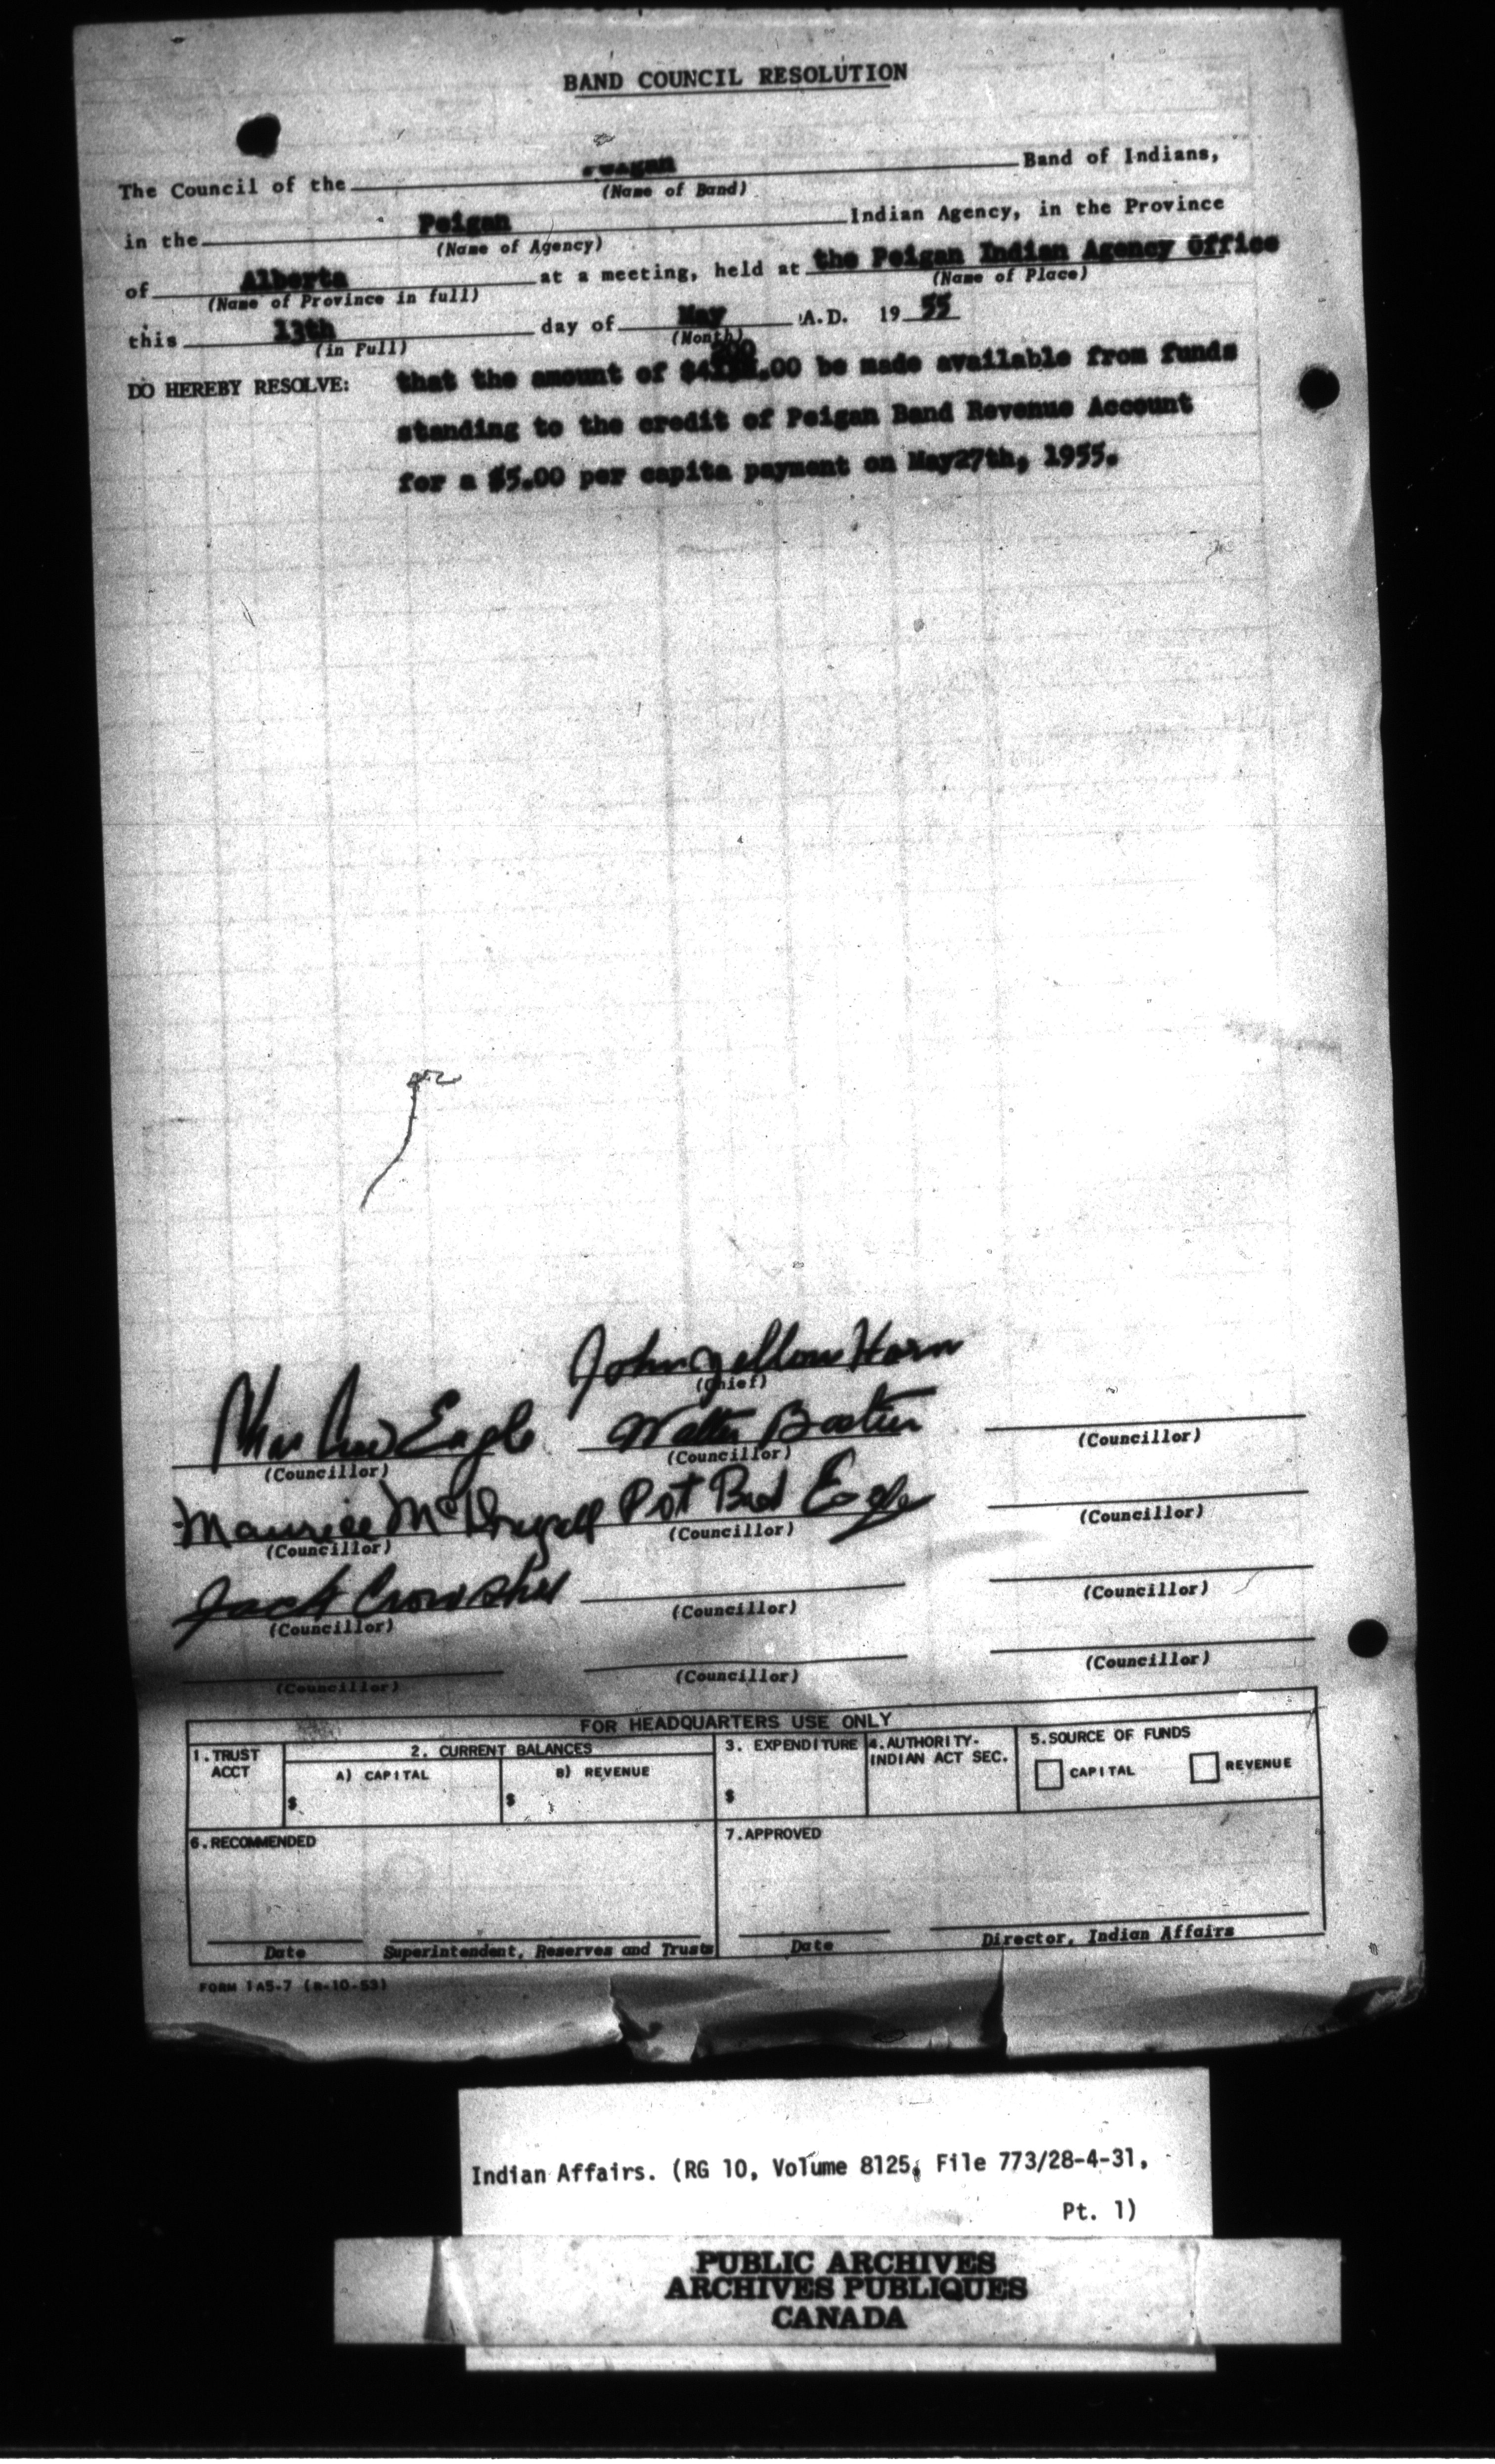 BAND COUNCIL RESOLUTION
The Council of the Peigan Band of Indians,
(Name of Band)
in the Peigan Indian Agency, in the Province
(Name of Agency)
of Alberta at a meeting, held at the Peigan Indian Agency Office
(Name of Province in full) (Name of Place)
this 13th day of May A.D. 19 55
(in Full) (Month)
200
DO HEREBY RESOLVE: that the amount of $4 .00 be made available from funds
standing to the credit of Peigan Band Revenue Account
for a $5.00 per capita payment on May27th, 1955.
John Yellow Horn
(Chief)
Eagle Walter Bastien
(Councillor) (Councillor) (Councillor)
Maurice McDougall Pat Bad Eagle
(Councillor) (Councillor) (Councillor)
Jack Crowshoe
(Councillor) (Councillor) (Councillor)
(Councillor) (Councillor) (Councillor)
FOR HEADQUARTERS USE ONLY
1.TRUST ACCT
2. CURRENT BALANCES
A) CAPITAL
$
B) REVENUE
$
3. EXPENDITURE
$
4.AUTHORITY-
INDIAN ACT SEC.
5.SOURCE OF FUNDS
CAPITAL REVENUE
6.RECOMMENDED
Date Superintendent, Reserves and Trusts
7.APPROVED
Date Director, Indian Affairs
FORM IA5-7 (R-10-53)
Indian Affairs. (RG 10, Volume 8125, File 773/28-4-31,
Pt. 1)
PUBLIC ARCHIVES
ARCHIVES PUBLIQUES
CANADA